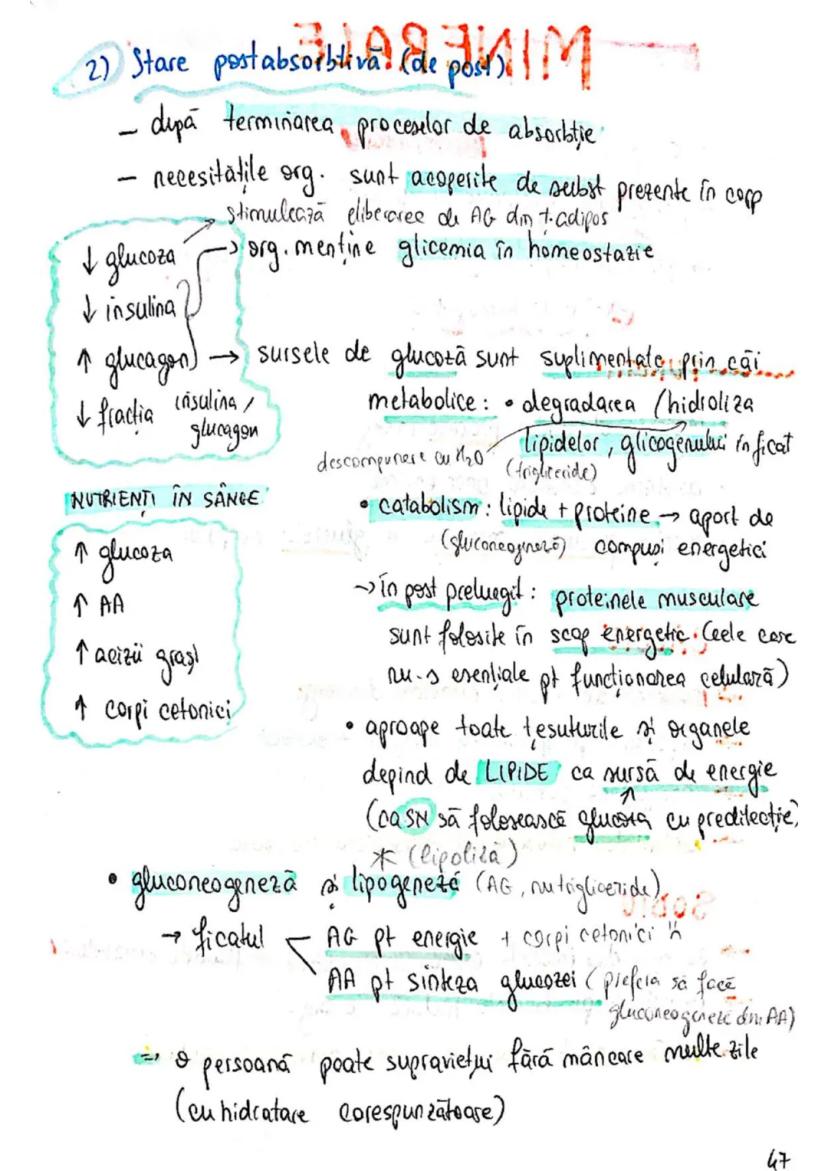 2) Stare postabsorbtivă (de post)
– după terminarea proceselor de absorbție
– necesitățile org. sunt acoperite de subst prezente în corp
stimulează eliberarea de AG din ț. adipos
↓ glucoza
→ org. menține glicemia în homeostazie
↓ insulina
↑ glucagon → sursele de glucoză sunt suplimentate prin căi
metabolice: • degradarea (hidroliza
↓ fracția insulina/
glucagon
lipidelor, glicogenului în ficat
descompunere cu H2O (trigliceride)
NUTRIENȚI ÎN SÂNGE
• catabolism: lipide + proteine → aport de
(gluconeogeneză) compuși energetici
↑ glucoza
↑ AA
↑ acizii grași
↑ corpi cetonici
→ în post prelungit: proteinele musculare
sunt folosite în scop energetic (cele care
nu-s esențiale pt funcționarea celulară)
• aproape toate țesuturile și organele
depind de LIPIDE ca sursă de energie
(ca SN să folosească glucoza cu predilecție)
* (lipoliză)
• gluconeogeneză și lipogeneză (AG, nu trigliceride)
→ ficatul AG pt energie + corpi cetonici
AA pt sinteza glucozei (prefera să facă
gluconeogeneză din AA)
⇒ o persoană poate supraviețui fără mâncare multe zile
(cu hidratare corespunzătoare)
47